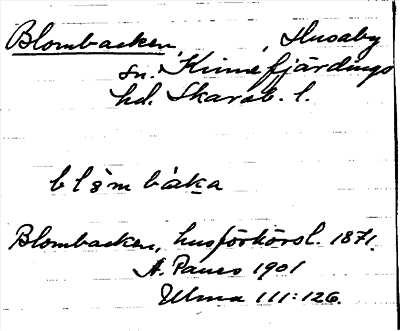 Blombacken, Husaby
sn. Kinne fjärdings
hd. Skarab. l.
Blombacken, husförhörsl. 1871.
A. Panes 1901
Ulma 111:126.